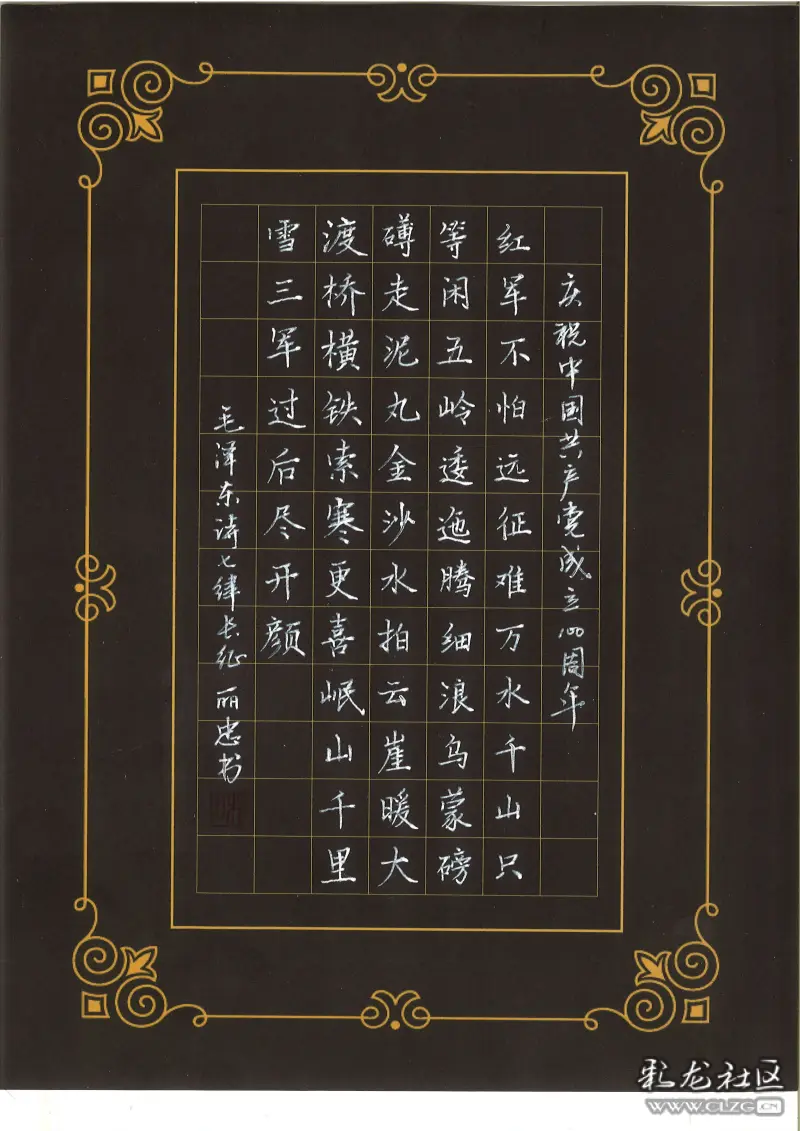 庆祝中国共产党成立100周年
红军不怕远征难万水千山只
等闲五岭逶迤腾细浪乌蒙磅
礴走泥丸金沙水拍云崖暖大
渡桥横铁索寒更喜岷山千里
雪三军过后尽开颜
毛泽东诗七律长征 丽忠书
彩龙社区
www.CLZG.CN